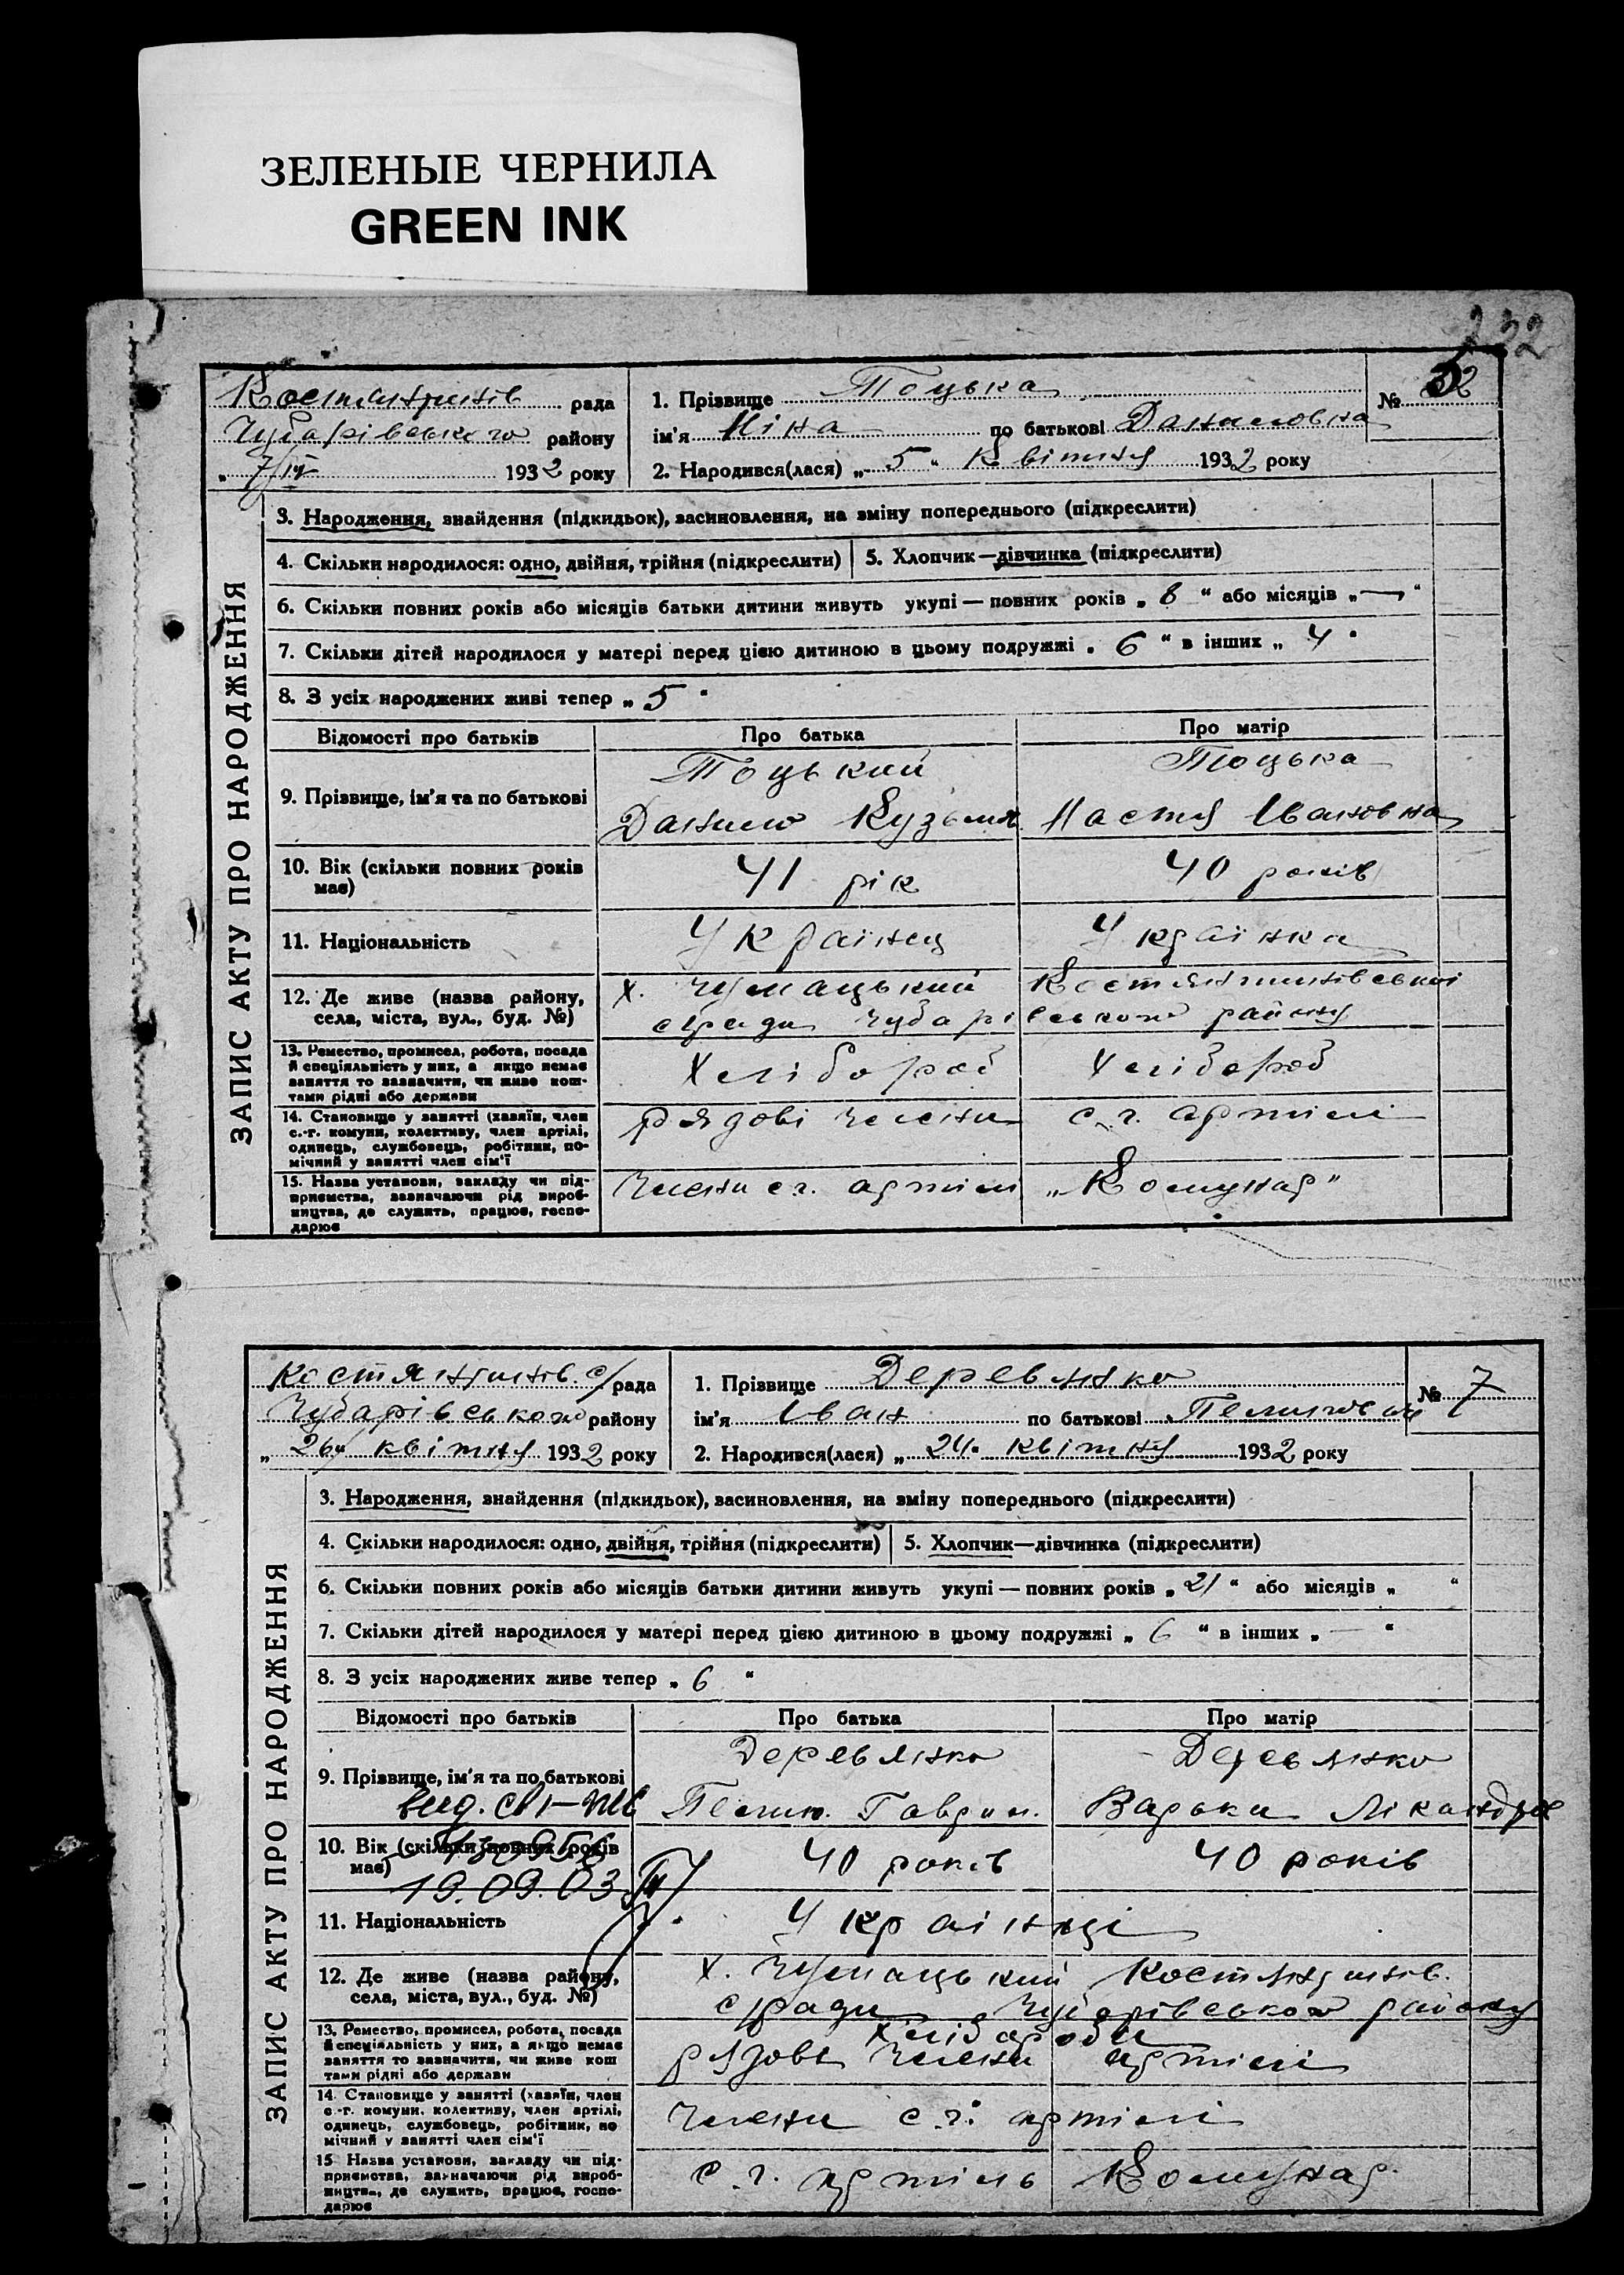 ЗЕЛЕНЫЕ ЧЕРНИЛА
GREEN INK
232
Костянтинів рада
Чубарівського району
„ 7/IV 1932 року
1. Прізвище Тоцька
№
ім'я Ніна по батькові Даниловна
2. Народився(лася) „ 5 “ Квітня 1932 року
ЗАПИС АКТУ ПРО НАРОДЖЕННЯ
3. Народження, знайдення (підкидьок), засиновлення, на зміну попереднього (підкреслити)
4. Скільки народилося: одно, двійня, трійня (підкреслити) 5. Хлопчик—дівчинка (підкреслити)
6. Скільки повних років або місяців батьки дитини живуть укупі — повних років „ 8 “ або місяців „ — “
7. Скільки дітей народилося у матері перед цією дитиною в цьому подружжі „ 6 “ в інших „ 4 “
8. З усіх народжених живі тепер „ 5 “
Відомості про батьків Про батька Про матір
9. Прізвище, ім'я та по батькові
Тоцький Тоцька
Данило Кузьмов Настя Івановна
10. Вік (скільки повних років має) 41 рік 40 років
11. Національність Українец Українка
12. Де живе (назва району, села, міста, вул., буд. №)
х. Чумацький Костянтинівської
с/ради Чубарівського району
13. Ремество, промисел, робота, посада
й спеціяльність у них, а якщо немає
заняття то зазначити, чи живе кош-
тами рідні або держави
Хлібороб Хлібороб
14. Становище у занятті (хазяїн, член
с.-г. комуни, колективу, член артілі,
одинець, службовець, робітник, по-
мічний у занятті член сім'ї
рядові члени с.г. артілі
15. Назва установи, закладу чи під-
приємства, зазначаючи рід вироб-
ництва, де служить, працює, госпо-
дарює
Члени с.г. артіли „Комунар“
Костянтинів. с/рада
Чубарівського району
„ 26 “ квітня 1932 року
1. Прізвище Деревянко
№ 7
ім'я Іван по батькові
2. Народився(лася) „ 24 “ квітня 1932 року
ЗАПИС АКТУ ПРО НАРОДЖЕННЯ
3. Народження, знайдення (підкидьок), засиновлення, на зміну попереднього (підкреслити)
4. Скільки народилося: одно, двійня, трійня (підкреслити) 5. Хлопчик—дівчинка (підкреслити)
6. Скільки повних років або місяців батьки дитини живуть укупі — повних років „ 21 “ або місяців „ “
7. Скільки дітей народилося у матері перед цією дитиною в цьому подружжі „ 6 “ в інших „ — “
8. З усіх народжених живе тепер „ 6 “
Відомості про батьків Про батька Про матір
9. Прізвище, ім'я та по батькові
Деревянко Деревянко
Гаврил. Варька Лікандров
вид. св-тв
10. Вік (скільки повних років має) 40 років 40 років
19.09.03
11. Національність Українці
12. Де живе (назва району, села, міста, вул., буд. №)
х. Чумацький Костянтинів.
с/ради Чубарівського району
13. Ремество, промисел, робота, посада
й спеціяльність у них, а якщо немає
заняття то зазначити, чи живе кош
тами рідні або держави
Хлібороби
рядові члени артілі
14. Становище у занятті (хазяїн, член
с.-г. комуни, колективу, член артілі,
одинець, службовець, робітник, по
мічний у занятті член сім'ї
члени с.г. артілі
15. Назва установи, закладу чи під-
приємства, зазначаючи рід вироб-
ництва, де служить, працює, госпо-
дарює
с.г. артіль Комунар.